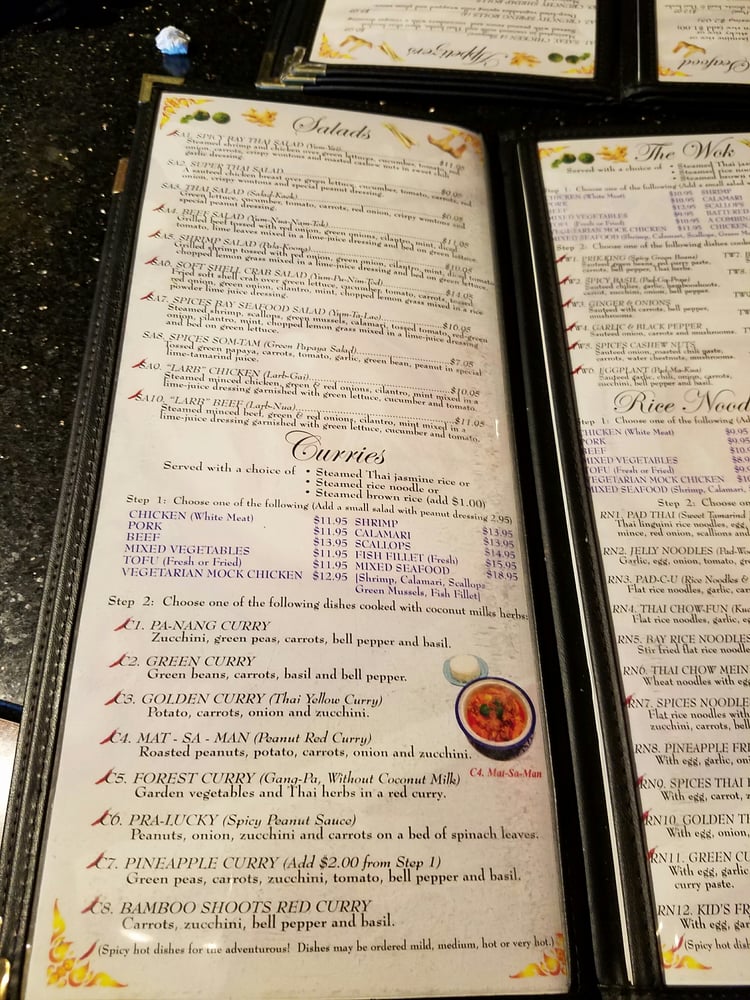 Salads
SA1. SPICY BAY THAI SALAD (Yum-Yai) $11.95
Steamed shrimp and chicken over green lettuce, cucumber, tomato, red
onion, carrots, crispy wontons and roasted cashew nuts in sweet chili
garlic dressing.
SA2. SUPER THAI SALAD $9.95
A sauteed chicken breast over green lettuce, cucumber, tomato, carrots, red
crispy wontons and special peanut dressing.
SA3. THAI SALAD (Salad-Kaek) $9.95
Green lettuce, cucumber, tomato, carrots, red onion, crispy wontons and
special peanut dressing.
SA4. BEEF SALAD (Yum-Nua-Nam-Tok) $11.95
Grilled beef tossed with red onion, green onions, cilantro, mint,
tomato, lime leaves mixed in a lime-juice dressing and bed on green lettuce.
SA5. SHRIMP SALAD (Pela-Koong) $10.95
Grilled shrimp tossed with red onion, green onion, cilantro, mint, diced tomato,
chopped lemon grass mixed in a lime-juice dressing and bed on green lettuce.
SA6. SOFT SHELL CRAB SALAD (Yum-Pu-Nim-Tod) $14.95
Fried soft shell crab over green lettuce, cucumber, tomato, carrots, tossed
red onion, green onion, cilantro, mint, chopped lemon grass mixed in a rice
powder and lime juice dressing.
SA7. SPICES BAY SEAFOOD SALAD (Yum-Ta-Lae) $16.95
Steamed shrimp, scallops, green mussels, calamari, tossed tomato, red-green
onion, cilantro, mint, chopped lemon grass mixed in a lime-juice dressing
and bed on green lettuce.
SA8. SPICES SOM-TAM (Green Papaya Salad) $7.95
Tossed green papaya, carrots, tomato, garlic, green bean, peanut in special
lime-tamarind juice.
SA9. "LARB" CHICKEN (Larb-Gai) $10.95
Steamed minced chicken, green & red onions, cilantro, mint mixed in a
lime-juice dressing garnished with green lettuce, cucumber and tomato.
SA10. "LARB" BEEF (Larb-Nua) $11.95
Steamed minced beef, green & red onions, cilantro, mint mixed in a
lime-juice dressing garnished with green lettuce, cucumber and tomato.
Curries
Served with a choice of • Steamed Thai jasmine rice or
• Steamed rice noodle or
• Steamed brown rice (add $1.00)
Step 1: Choose one of the following (Add a small salad with peanut dressing 2.95)
CHICKEN (White Meat) $11.95 SHRIMP $13.95
PORK $13.95 CALAMARI $13.95
BEEF $13.95 SCALLOPS $14.95
MIXED VEGETABLES $11.95 FISH FILLET (Fresh) $15.95
TOFU (Fresh or Fried) $11.95 MIXED SEAFOOD $18.95
VEGETARIAN MOCK CHICKEN $12.95 [Shrimp, Calamari, Scallops
Green Mussels, Fish Fillet]
Step 2: Choose one of the following dishes cooked with coconut milks herbs:
C1. PA-NANG CURRY
Zucchini, green peas, carrots, bell pepper and basil.
C2. GREEN CURRY
Green beans, carrots, basil and bell pepper.
C3. GOLDEN CURRY (Thai Yellow Curry)
Potato, carrots, onion and zucchini.
C4. MAT - SA - MAN (Peanut Red Curry)
Roasted peanuts, potato, carrots, onion and zucchini.
C4. Mat-Sa-Man
C5. FOREST CURRY (Gang-Pa, Without Coconut Milk)
Garden vegetables and Thai herbs in a red curry.
C6. PRA-LUCKY (Spicy Peanut Sauce)
Peanuts, onion, zucchini and carrots on a bed of spinach leaves.
C7. PINEAPPLE CURRY (Add $2.00 from Step 1)
Green peas, carrots, zucchini, tomato, bell pepper and basil.
C8. BAMBOO SHOOTS RED CURRY
Carrots, zucchini, bell pepper and basil.
(Spicy hot dishes for the adventurous! Dishes may be ordered mild, medium, hot or very hot.)
The Wok
Served with a choice of • Steamed Thai
• Steamed rice
• Steamed brown
Step 1: Choose one of the following (Add a small salad
CHICKEN (White Meat) $10.95 SHRIMP
PORK $10.95 CALAMARI
BEEF $12.95 SCALLOPS
MIXED VEGETABLES $9.95
TOFU (Fresh or Fried) $10.95
VEGETARIAN MOCK CHICKEN $11.95 CHICKEN
MIXED SEAFOOD (Shrimp, Calamari, Scallops, Green
Step 2: Choose one of the following dishes
W1. PRIK KING (Spicy Green Beans)
Sauteed green beans, red curry paste,
carrots, bell pepper, Thai herbs.
W2. SPICY BASIL
W3. GINGER & ONIONS
Sauteed with carrots, bell pepper,
mushrooms.
W4. GARLIC & BLACK PEPPER
Sauteed onion, carrots and mushrooms.
W5. SPICES CASHEW NUTS
Sauteed onion, roasted chili paste,
carrots, water chestnuts, mushrooms.
W6. EGGPLANT (Pad-Ma-Kua)
Sauteed garlic, chili, onion, carrots,
zucchini, bell pepper and basil.
Rice Nood
Step 1: Choose one of the following
CHICKEN (White Meat) $9.95
PORK $9.95
BEEF
MIXED VEGETABLES
TOFU (Fresh or Fried)
VEGETARIAN MOCK CHICKEN
MIXED SEAFOOD (Shrimp, Calamari,
Step 2: Choose on
RN1. PAD THAI (Sweet Tamarind
Thai linguini rice noodles, egg,
mince, red onion, scallions and
RN2. JELLY NOODLES (Pad-Wo
Garlic, egg, onion, tomato, gre
RN3. PAD-C-U (Rice Noodles &
Flat rice noodles, garlic, car
RN4. THAI CHOW-FUN (Kua
Flat rice noodles, garlic, eg
RN5. BAY RICE NOODLES
Stir fried flat rice noodle
RN6. THAI CHOW MEIN
Wheat noodles with eg
RN7. SPICES NOODLE
Flat rice noodles with
zucchini, carrots, bell
RN8. PINEAPPLE FRI
With egg, garlic, oni
RN9. SPICES THAI F
With egg, carrot, z
RN10. GOLDEN TH
With egg, onion,
RN11. GREEN CU
With egg, garlic
curry paste.
RN12. KID'S FR
With egg, gar
(Spicy hot dish
Appetizers
Seafood